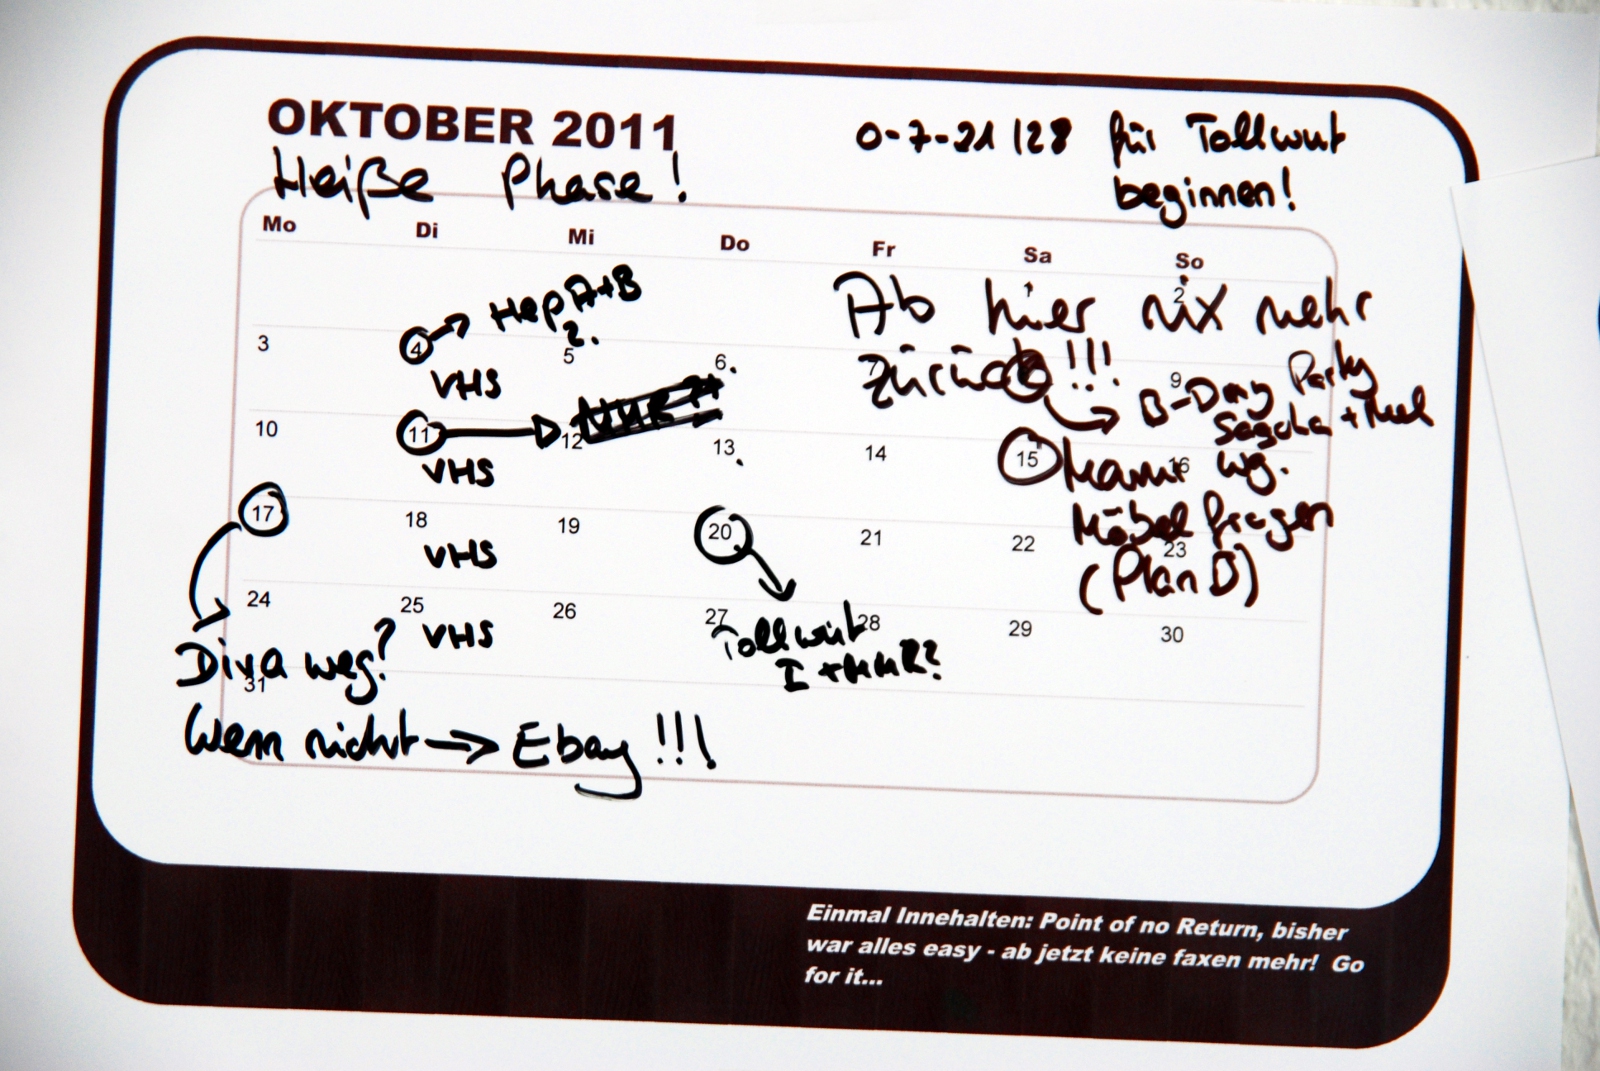 OKTOBER 2011
0-7-21/28 für Tollwut
beginnen!
Heiße Phase!
Mo Di Mi Do Fr Sa So
1 2
Ab hier nix mehr
zurück!!!
Hep A+B
2.
3 4 5 6. 9
VHS
B-Day Party
Sascha + Mel
10 11 12 13. 14 15 16
VHS
wg.
Möbel fragen
(Plan B)
17 18 19 20 21 22 23
VHS
24 25 26 27 28 29 30
VHS
Tollwut
I + MMR?
Diva weg?
31
Wenn nicht → Ebay!!!
Einmal Innehalten: Point of no Return, bisher
war alles easy - ab jetzt keine faxen mehr! Go
for it...